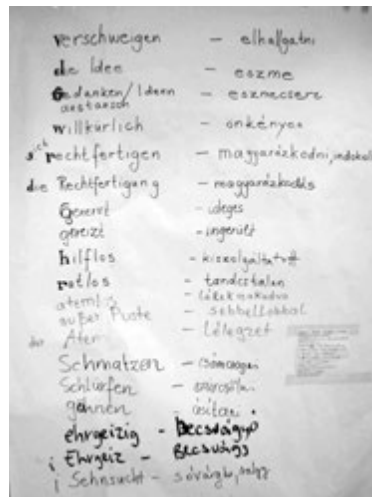 verschweigen – elhallgatni
die Idee – eszme
Gedanken/Ideen – eszmecsere
austausch
willkürlich – önkényes
sich rechtfertigen – magyarázkodni, indokol
die Rechtfertigung – magyarázkodás
Genervt – ideges
gereizt – ingerült
hilflos – kiszolgáltatott
ratlos – tanácstalan
atemlos – lélekszakadva
außer Puste –
der Atem – lélegzet
Schmatzen – csámcsogni
Schlürfen – szürcsölni
gähnen – ásítani
ehrgeizig – becsvágyó
Ehrgeiz – Becsvágy
Sehnsucht – sóvárgás, vágy